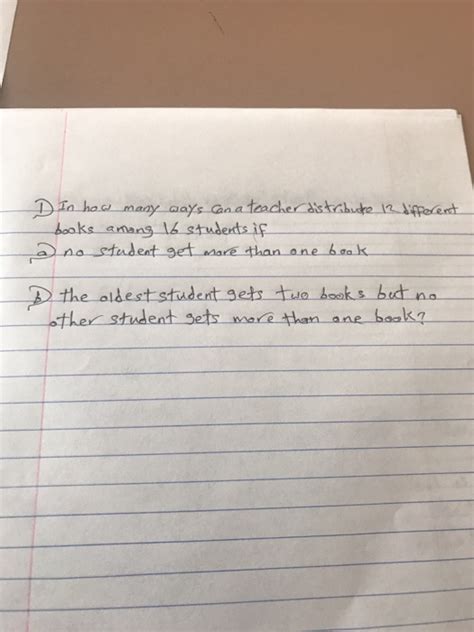 1) In how many ways can a teacher distribute 12 different
books among 16 students if
a) no student get more than one book
b) the oldest student gets two books but no
other student gets more than one book?